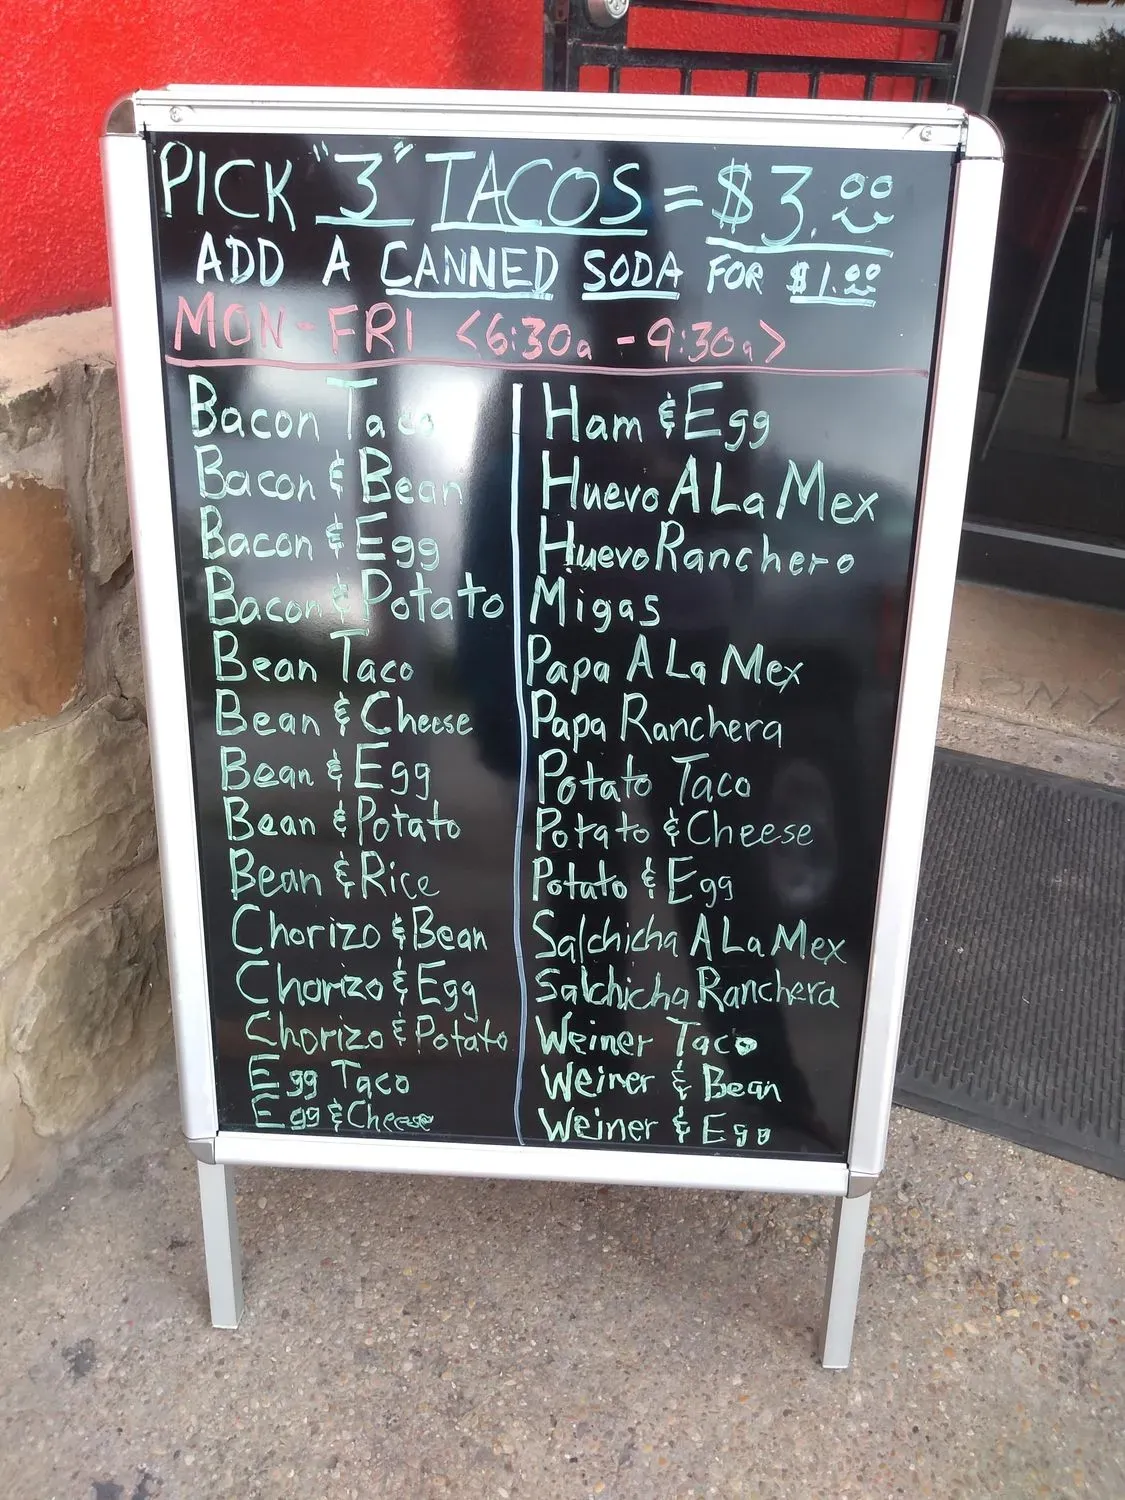 PICK "3" TACOS = $3.00
ADD A CANNED SODA FOR $1.00
MON-FRI <6:30a - 9:30a>
Bacon Taco
Bacon & Bean
Bacon & Egg
Bacon & Potato
Bean Taco
Bean & Cheese
Bean & Egg
Bean & Potato
Bean & Rice
Chorizo & Bean
Chorizo & Egg
Chorizo & Potato
Egg Taco
Egg & Cheese
Ham & Egg
Huevo A La Mex
Huevo Ranchero
Migas
Papa A La Mex
Papa Ranchera
Potato Taco
Potato & Cheese
Potato & Egg
Salchicha A La Mex
Salchicha Ranchera
Weiner Taco
Weiner & Bean
Weiner & Egg